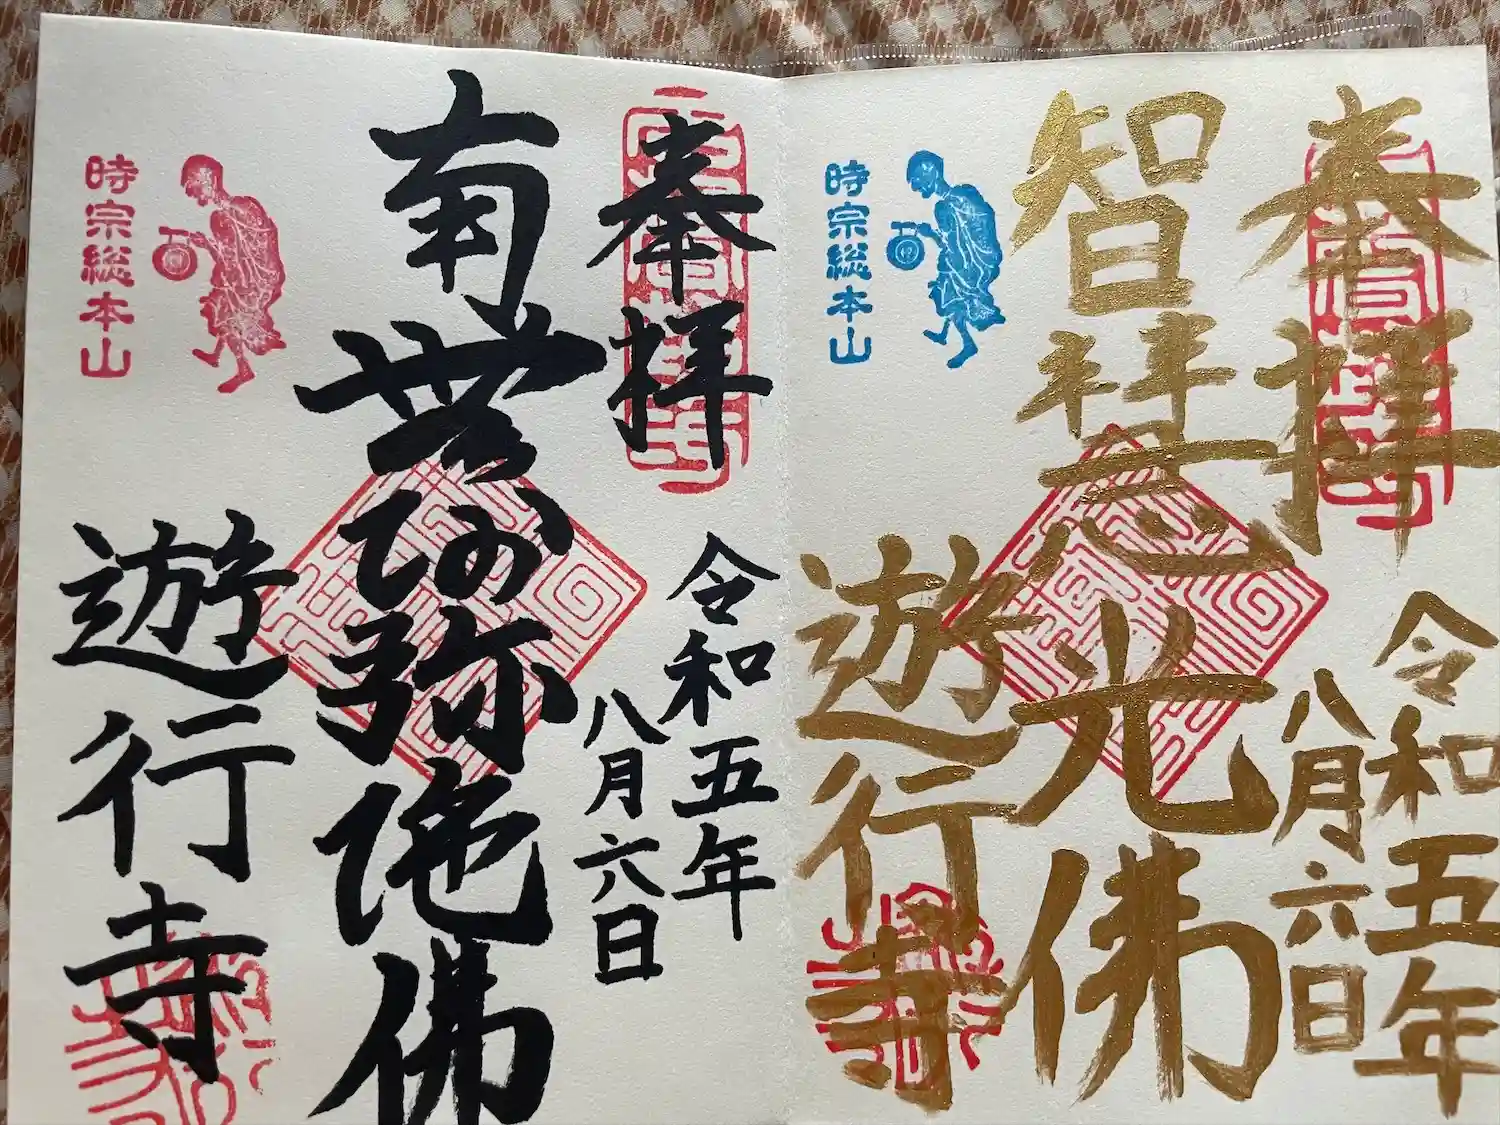 奉拝
令和五年
八月六日
智慧光佛
遊行寺
時宗総本山
奉拝
令和五年
八月六日
南無阿弥陀佛
遊行寺
時宗総本山